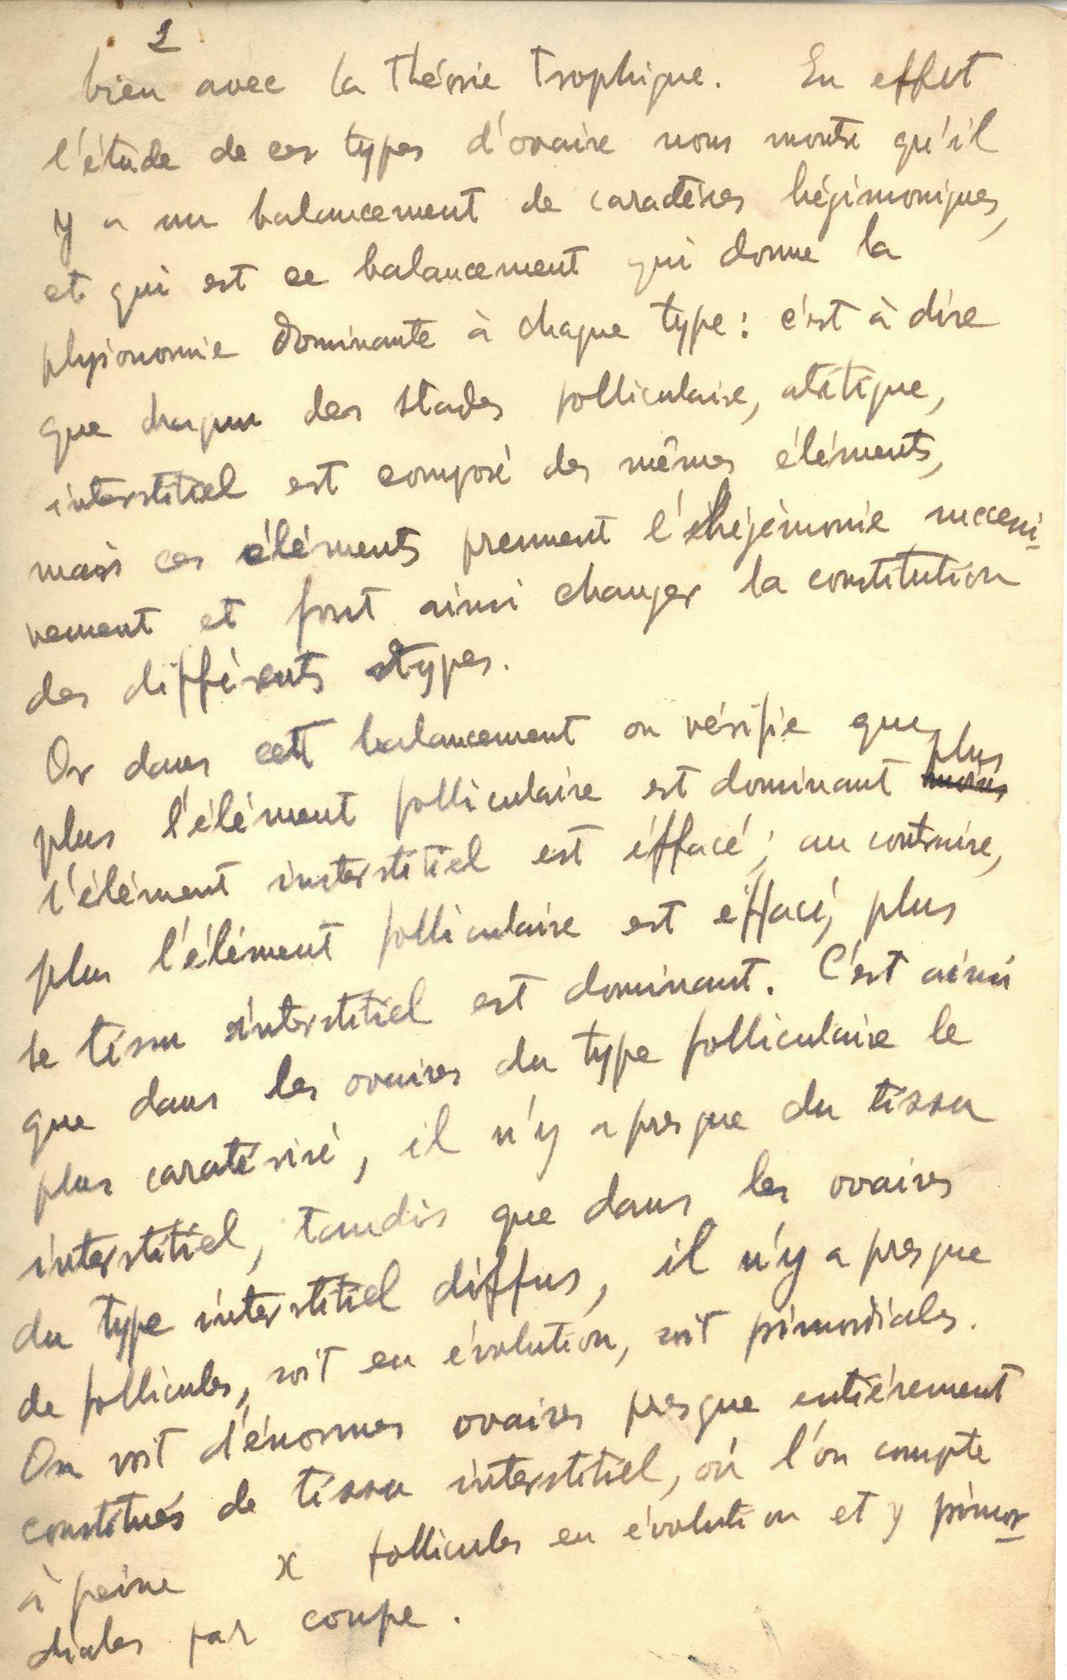 2
bien avec la théorie trophique. En effet
l'étude de ces types d'ovaire nous montre qu'il
y a un balancement de caratères hégémoniques,
et qui est ce balancement qui donne la
physionomie dominante à chaque type : c'est à dire
que chaqun des stades folliculaire, atétique,
interstitiel est composé des mêmes éléments,
mais ces éléments prennent l'hégémonie successi-
vement et font ainsi changer la constitution
des différents types.
Or dans cett balancement on vérifie que
plus
plus l'élément folliculaire est dominant moins
l'élément interstitiel est éffacé ; au contraire,
plus l'élément folliculaire est effacé, plus
le tissu interstitiel est dominant. C'est ainsi
que dans les ovaires du type folliculaire le
plus caratérisé, il n'y a presque du tissu
interstitiel, tandis que dans les ovaires
du type interstitiel diffus, il n'y a presque
de follicules, soit en évolution, soit primordiales.
On voit d'énormes ovaires presque entiérement
constitués de tissu interstitiel, où l'on compte
à peine x follicules en évolution et y primor-
diales par coupe.